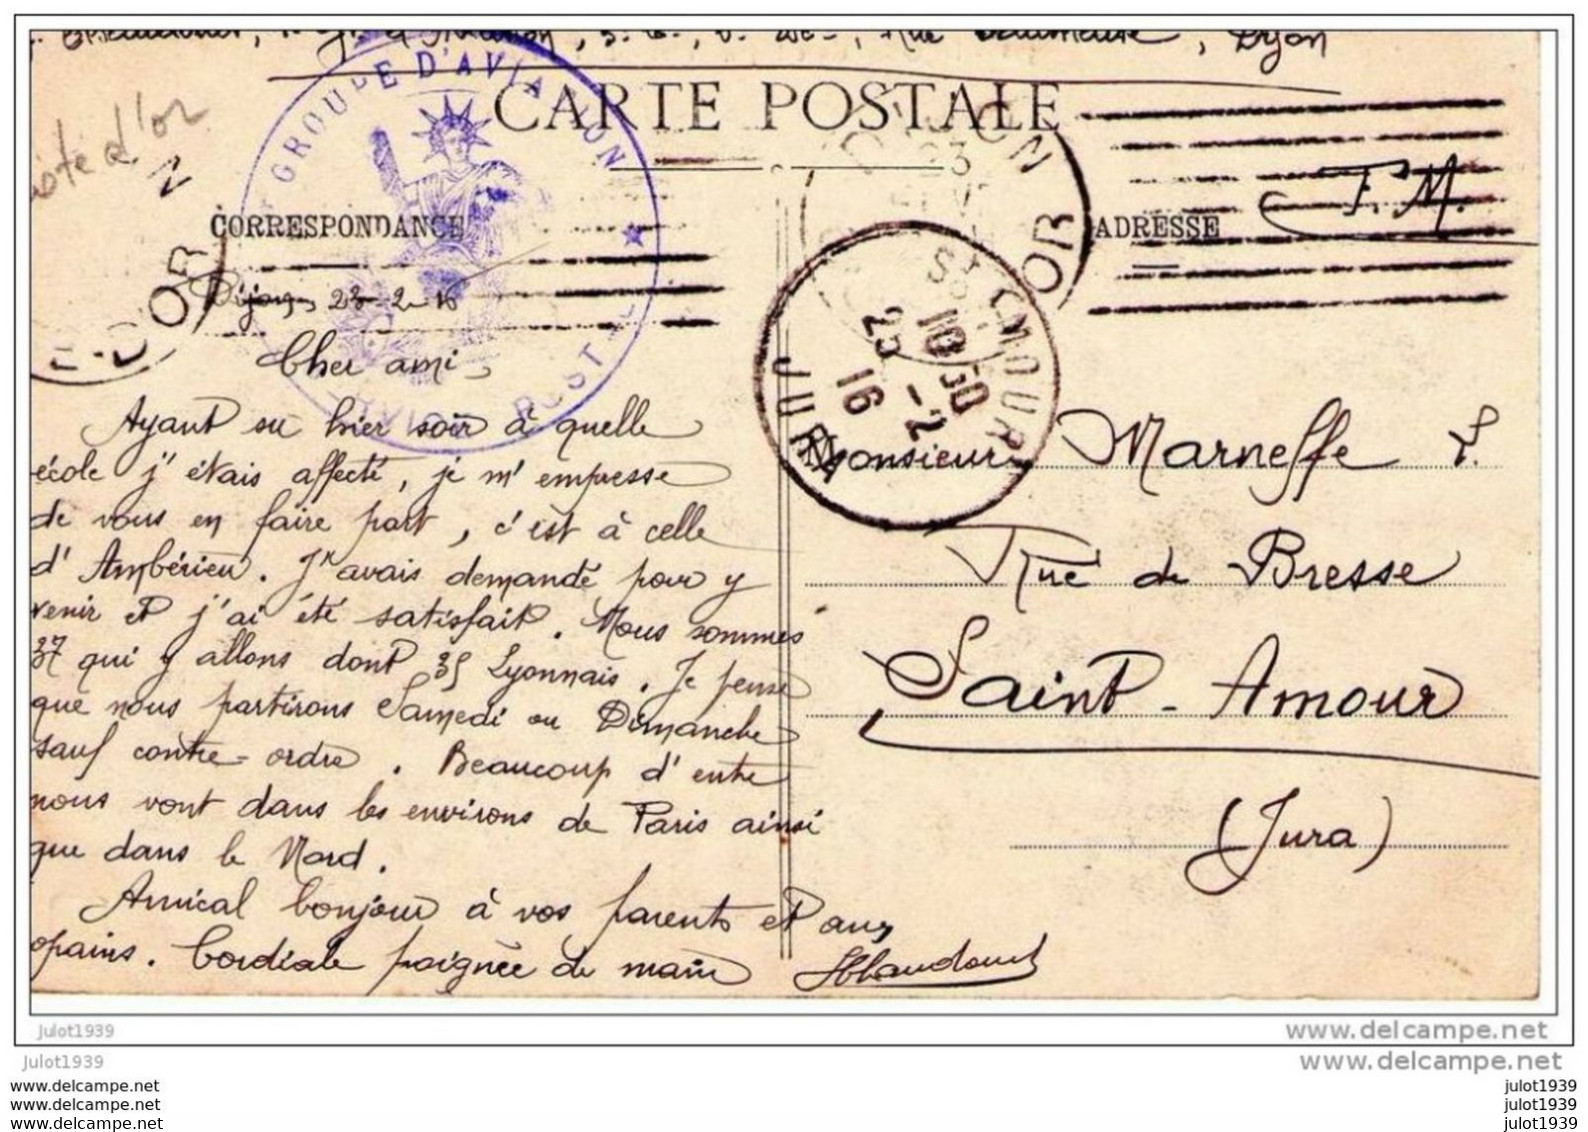 d'Aviation, Rue Lyon
CARTE POSTALE
Côte d'or
GROUPE D'AVIATION
CORRESPONDANCE
ADRESSE
F. M.
ST AMOUR
10 30
25 -2
16
JURA
Dijon, 23-2-16
Cher ami,
Ayant su hier soir à quelle
école j'étais affecté, je m'empresse
de vous en faire part, c'est à celle
d'Ambérieu. J'avais demandé pour y
venir et j'ai été satisfait. Nous sommes
37 qui y allons dont 35 Lyonnais. Je pense
que nous partirons Samedi ou Dimanche
sauf contre-ordre. Beaucoup d'entre
nous vont dans les environs de Paris ainsi
que dans le Nord.
Amical bonjour à vos parents et aux
opains. Cordiale poignée de main
Monsieur Marneffe L.
Rue de Bresse
Saint-Amour
(Jura)
Julot1939
www.delcampe.net
Julot1939
www.delcampe.net
www.delcampe.net
julot1939
www.delcampe.net
julot1939
www.delcampe.net
julot1939